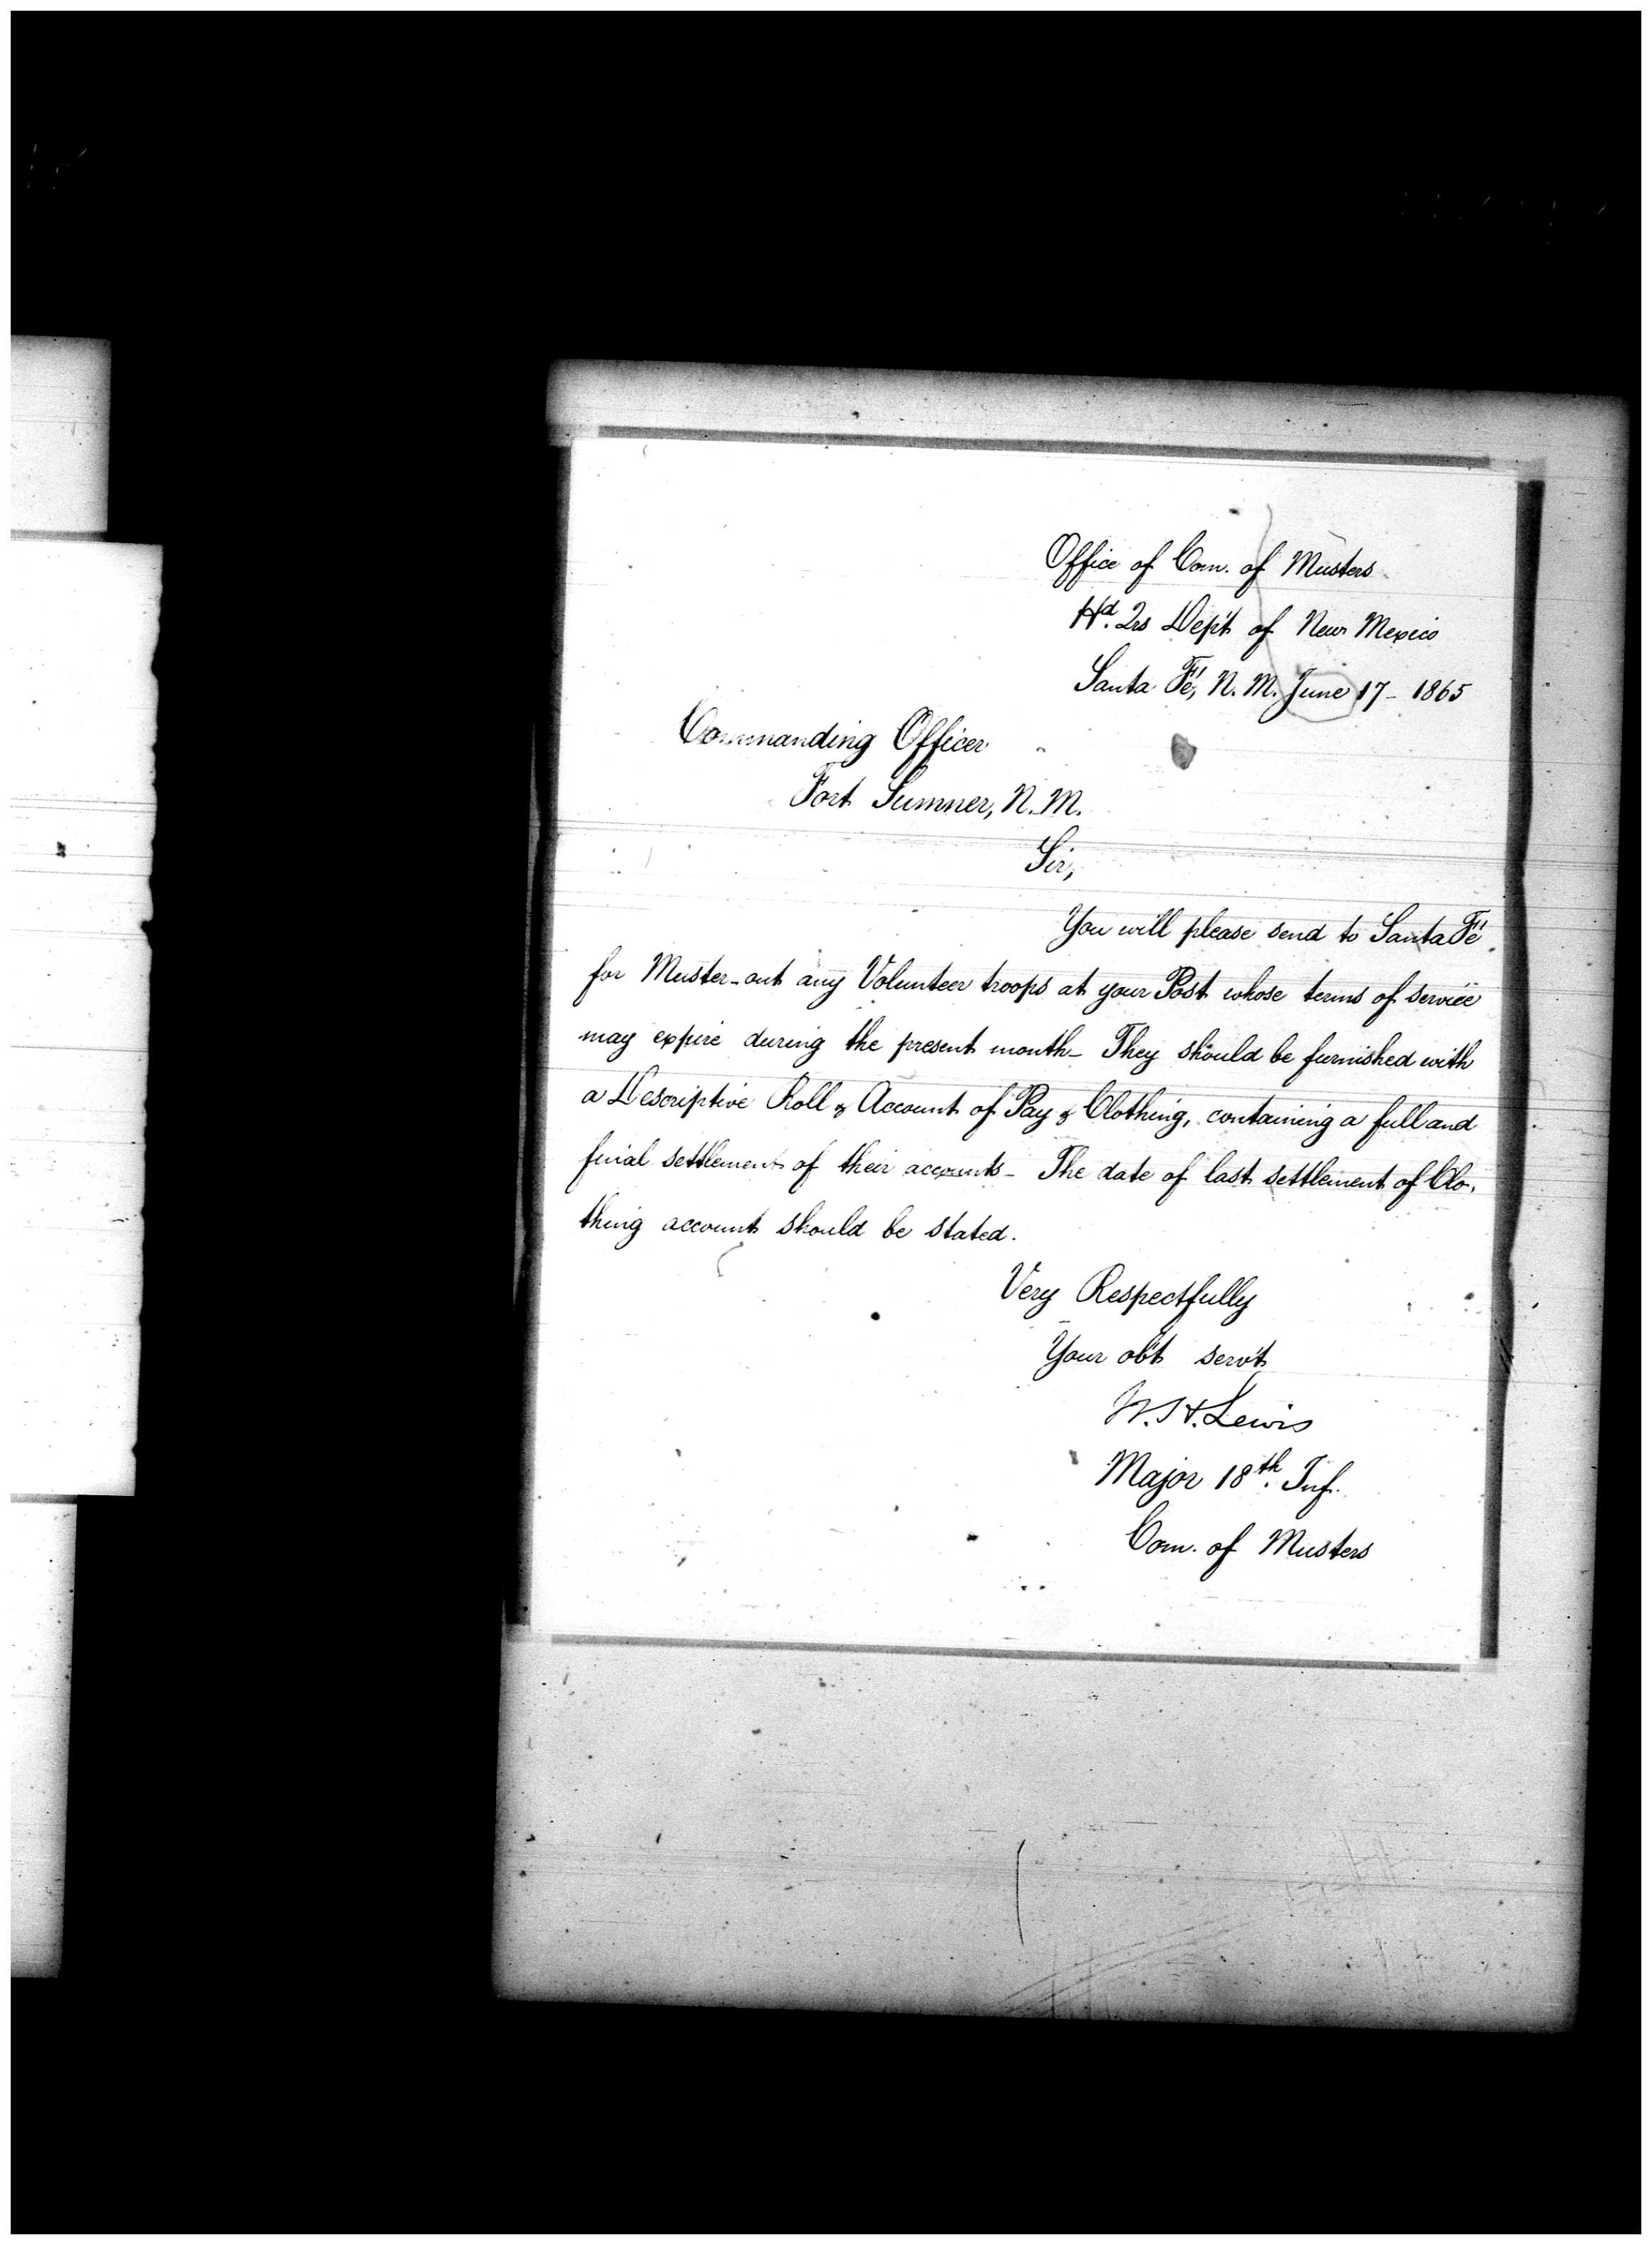 Office of Com. of Musters
Hd. Qrs Dep't of New Mexico
Santa Fé, N. M. June 17 - 1865
Commanding Officer
Fort Sumner, N. M.
Sir,
You will please send to Santa Fé
for Muster-out any Volunteer troops at your Post whose terms of service
may expire during the present month - They should be furnished with
a Descriptive Roll & Account of Pay & Clothing, containing a full and
final settlement of their accounts - The date of last settlement of Clo-
thing account should be stated.
Very Respectfully
Your ob't serv't
W. H. Lewis
Major 18th. Inf.
Com. of Musters